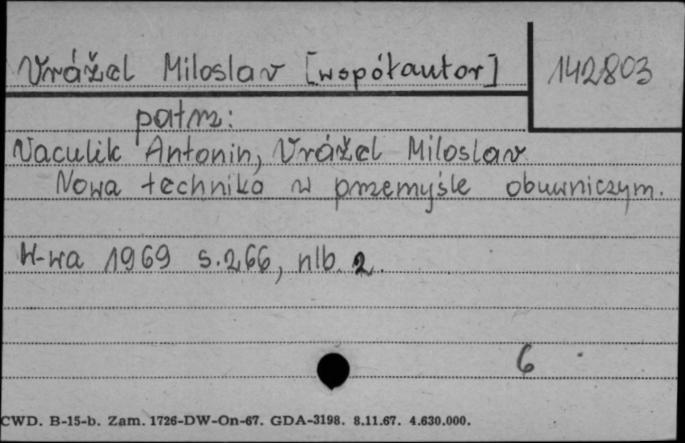 Vrážel Miloslav [współautor]
142803
patrz:
Vaculik Antonin, Vrážel Miloslav
Nowa technika w przemyśle obuwniczym.
W-wa 1969 s.266, nlb. 2.
6
CWD. B-15-b. Zam. 1726-DW-On-67. GDA-3198. 8.11.67. 4.630.000.